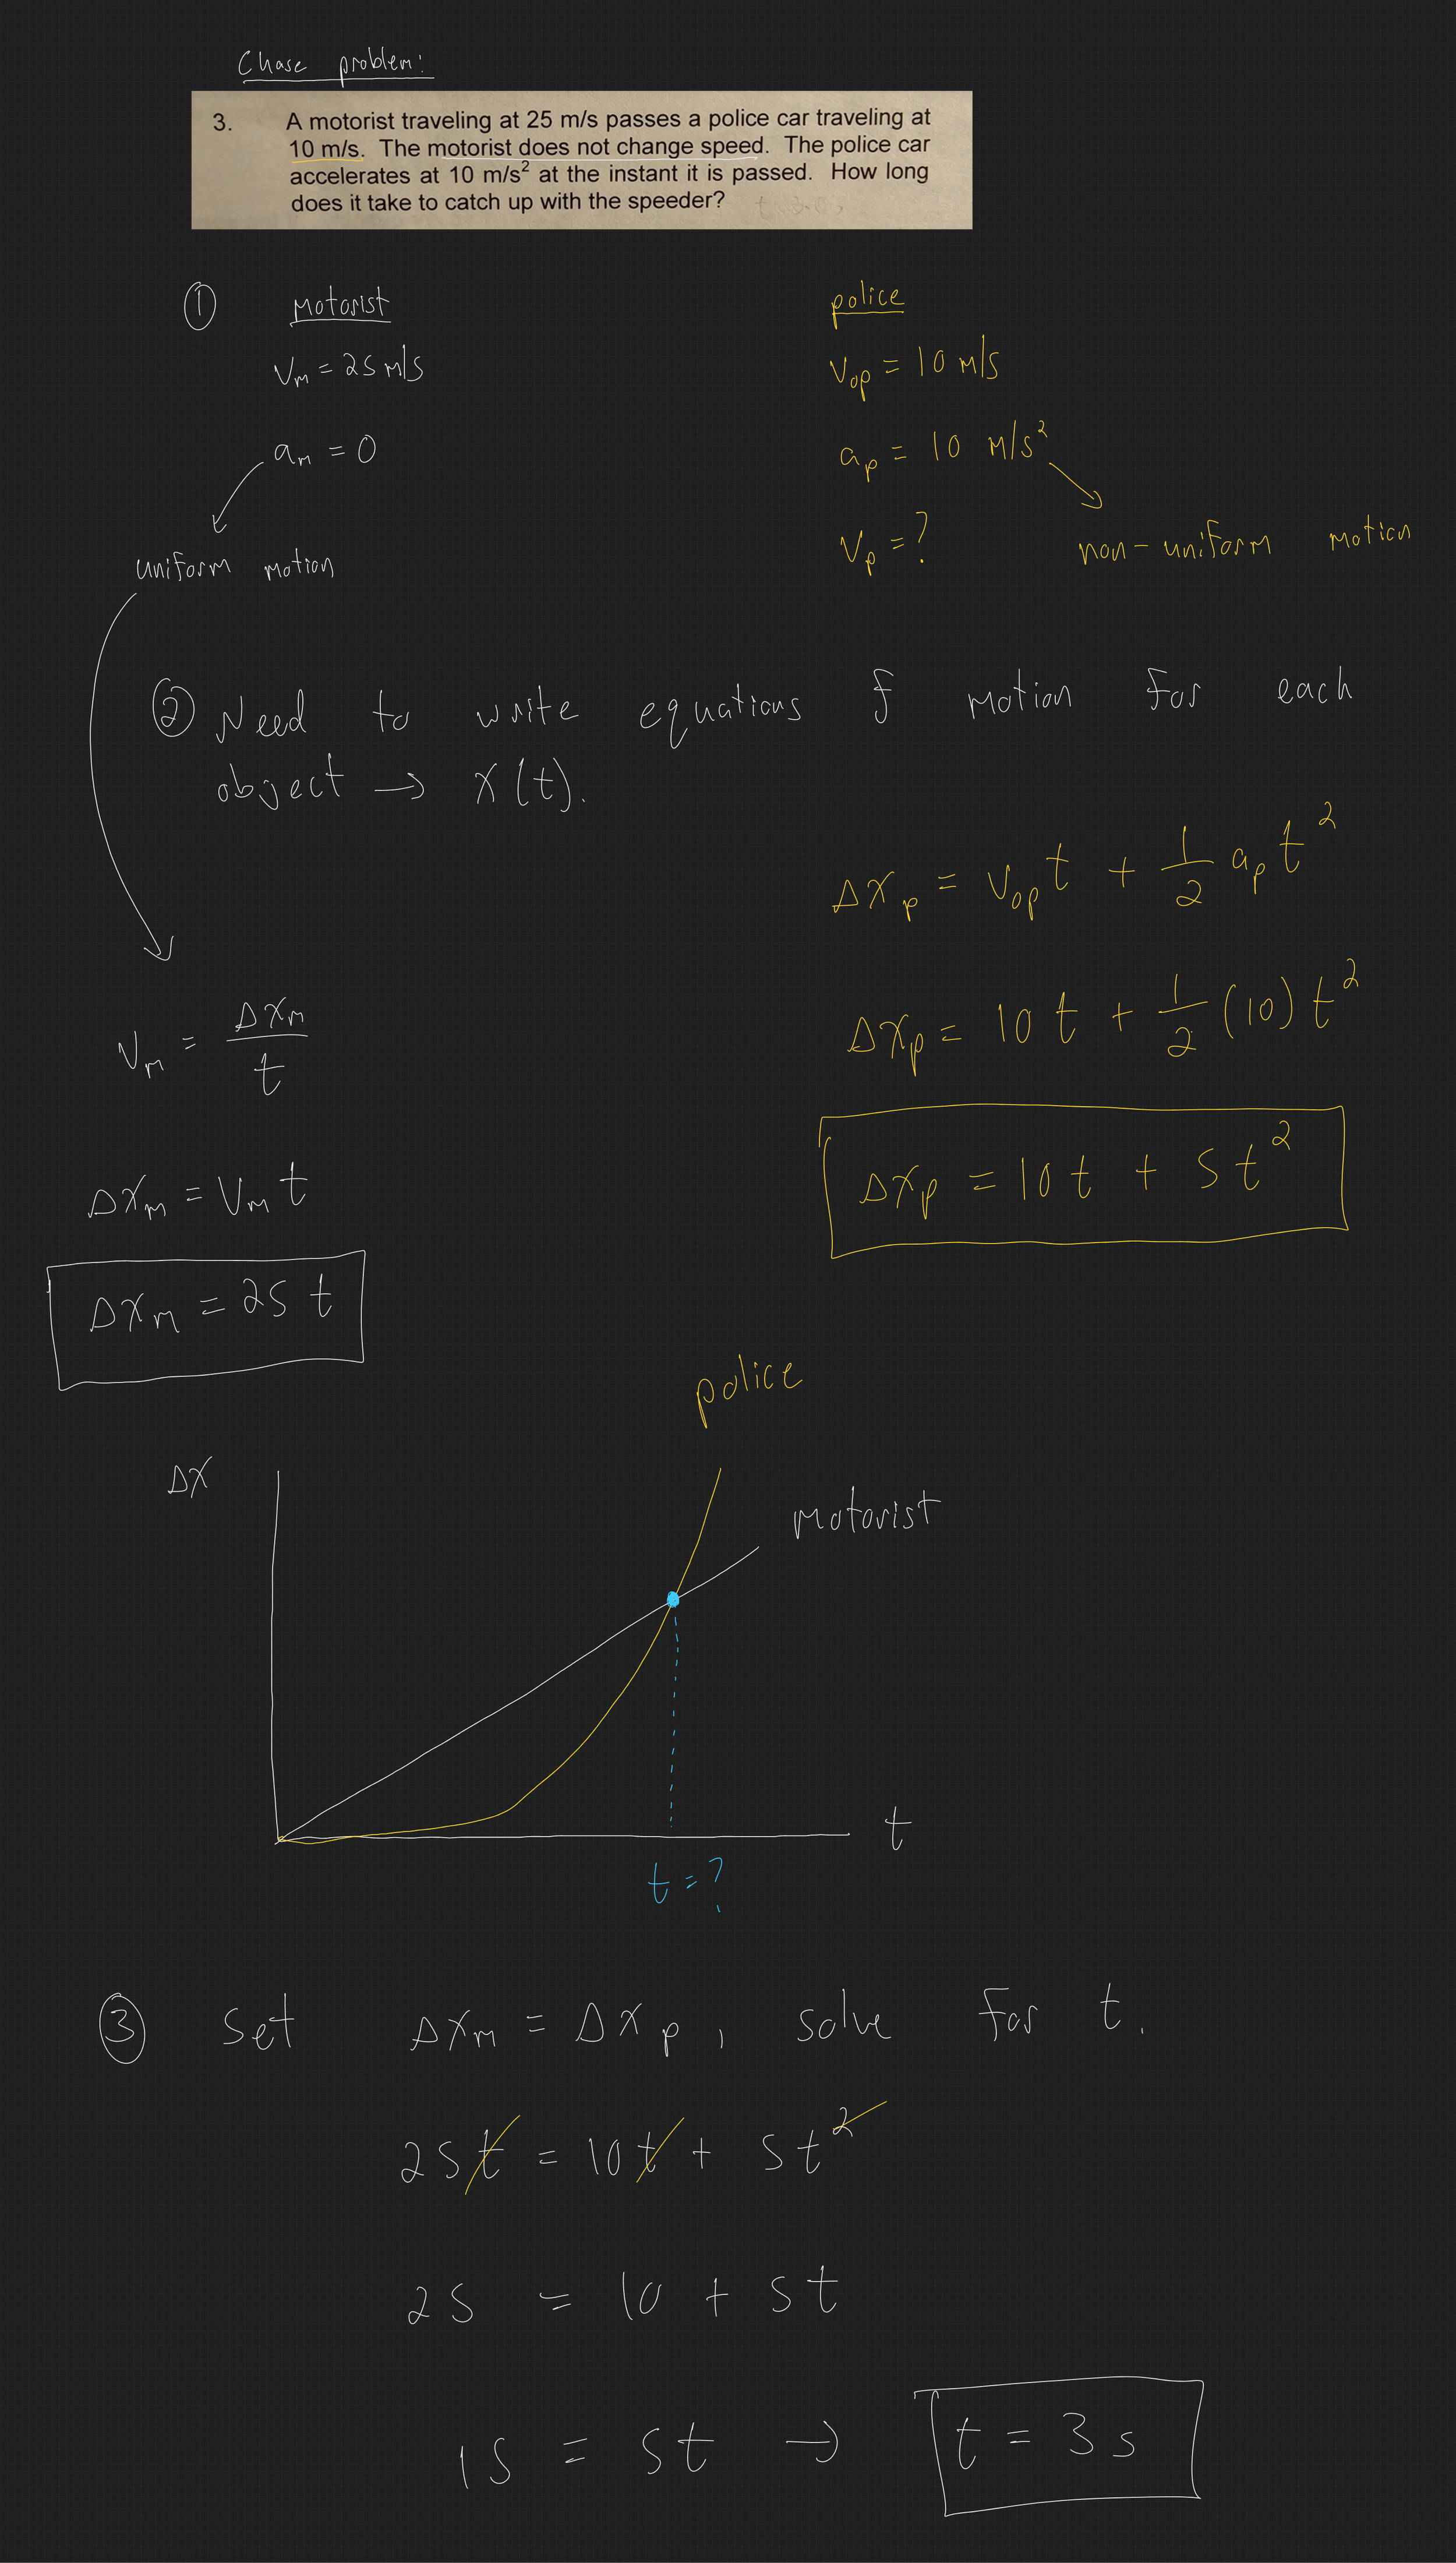 Chase problem:
3. A motorist traveling at 25 m/s passes a police car traveling at
10 m/s. The motorist does not change speed. The police car
accelerates at 10 m/s² at the instant it is passed. How long
does it take to catch up with the speeder?
① Motorist
police
Vₘ = 25 m/s
V₀ₚ = 10 m/s
aₘ = 0
aₚ = 10 m/s²
Vₚ = ?
uniform motion
non-uniform motion
② Need to write equations of motion for each
object → X(t).
ΔXₚ = V₀ₚt + 1/2 aₚt²
Vₘ = ΔXₘ/t
ΔXₚ = 10t + 1/2 (10)t²
ΔXₘ = Vₘt
ΔXₚ = 10t + 5t²
ΔXₘ = 25t
police
ΔX
Motorist
t
t = ?
③ Set ΔXₘ = ΔXₚ, solve for t.
25t = 10t + 5t²
25 = 10 + 5t
15 = 5t → t = 3s